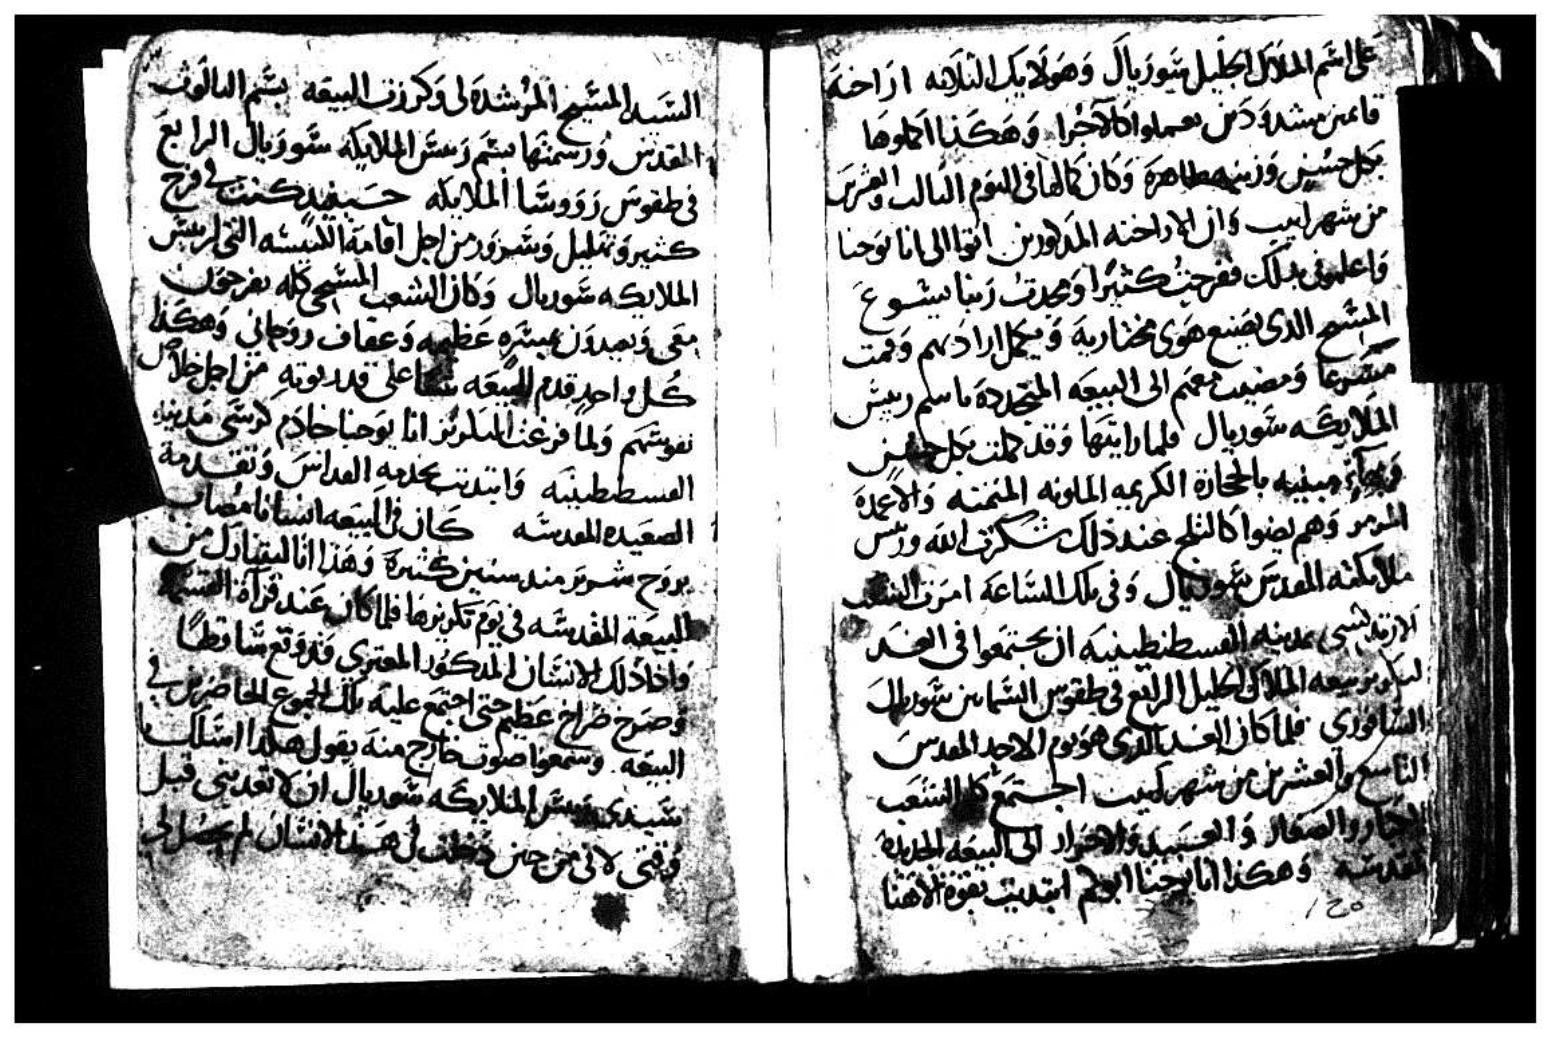 على اسم الملاك الجليل سوريال وهولايك الثلاثه اراخنه
قايمين يعملوا كالآجرا وهكذا اكملوها
بكل حسن وزينه طاهره وكان كمالها في اليوم الثالث والعشرين
من شهر ابيب وان الاراخنه المذكورين اتوا الى انا يوحنا
واعلموني بذلك ففرحت كثيرًا ومجدت ربنا يسوع
المسيح الذي يصنع هوى مختاريه ويكمل ارادتهم وقمت
مسرعا ومضيت معهم الى البيعه المتجدده باسم رييس
الملايكه سوريال فلما رايتها وقد كملت بكل حسن
مبنيه بالحجاره الكريمه الملونه المثمنه والاعمده
المرمر وهم يضوا كالثلج عند ذلك شكرت الله ورييس
ملايكته المقدس سوريال وفي تلك الساعه امرت الشعب
بمدينه القسطنطينيه ان يجتمعوا في الغد
بيعه الملاك الجليل الرابع في طقوس السمايين سوريال
السافوري فلما كان الغد الذي هو يوم الاحد المقدس
التاسع والعشرين من شهر ابيب اجتمع كل الشعب
الكبار والصغار والعبيد والاحرار الى البيعه الجديده
المقدسه وهكذا انا يوحنا ابوكم ابتديت بقوة الاهنا
السيد المسيح المرشده لي وكرزت البيعه بسم الثالوث
المقدس ورسمتها بسم رييس الملايكه سوريال الرابع
في طقوس رووسا الملايكه حينيد كنت في فرح
كثير وتهليل وسرور من اجل اقامة الكنيسه التي لرييس
الملايكه سوريال وكان الشعب المسيحي كله يفرحون
معي ويعيدون بمسره عظيمه وعفاف روحاني وهكذا
كل واحد قدم للبيعه على قدر قوته من اجل خلاص
نفوسهم ولما فرغت التكريز انا يوحنا خادم كرسي مدينة
القسطنطينيه وابتديت بخدمه القداس وتقدمة
الصعيده المقدسه كان في البيعه انسانا مصاب
بروح شرير منذ سنين كثيره وهذا اتا ليتبارك من
البيعة المقدسه في يوم تكريزها فلما كان عند قراة
واذا ذلك الانسان المذكور المعتري قد وقع ساقطًا
وصرح صراخ عظيم حتى اجتمع عليه تلك الجموع الحاضرين في
البيعه وسمعوا صوت خارج منه يقول هكذا اسلك
سيدي رييس الملايكه سوريال ان لا تعذبني قبل
وقتي لاني من حين دخلت في هذا الانسان لم يحصل لي